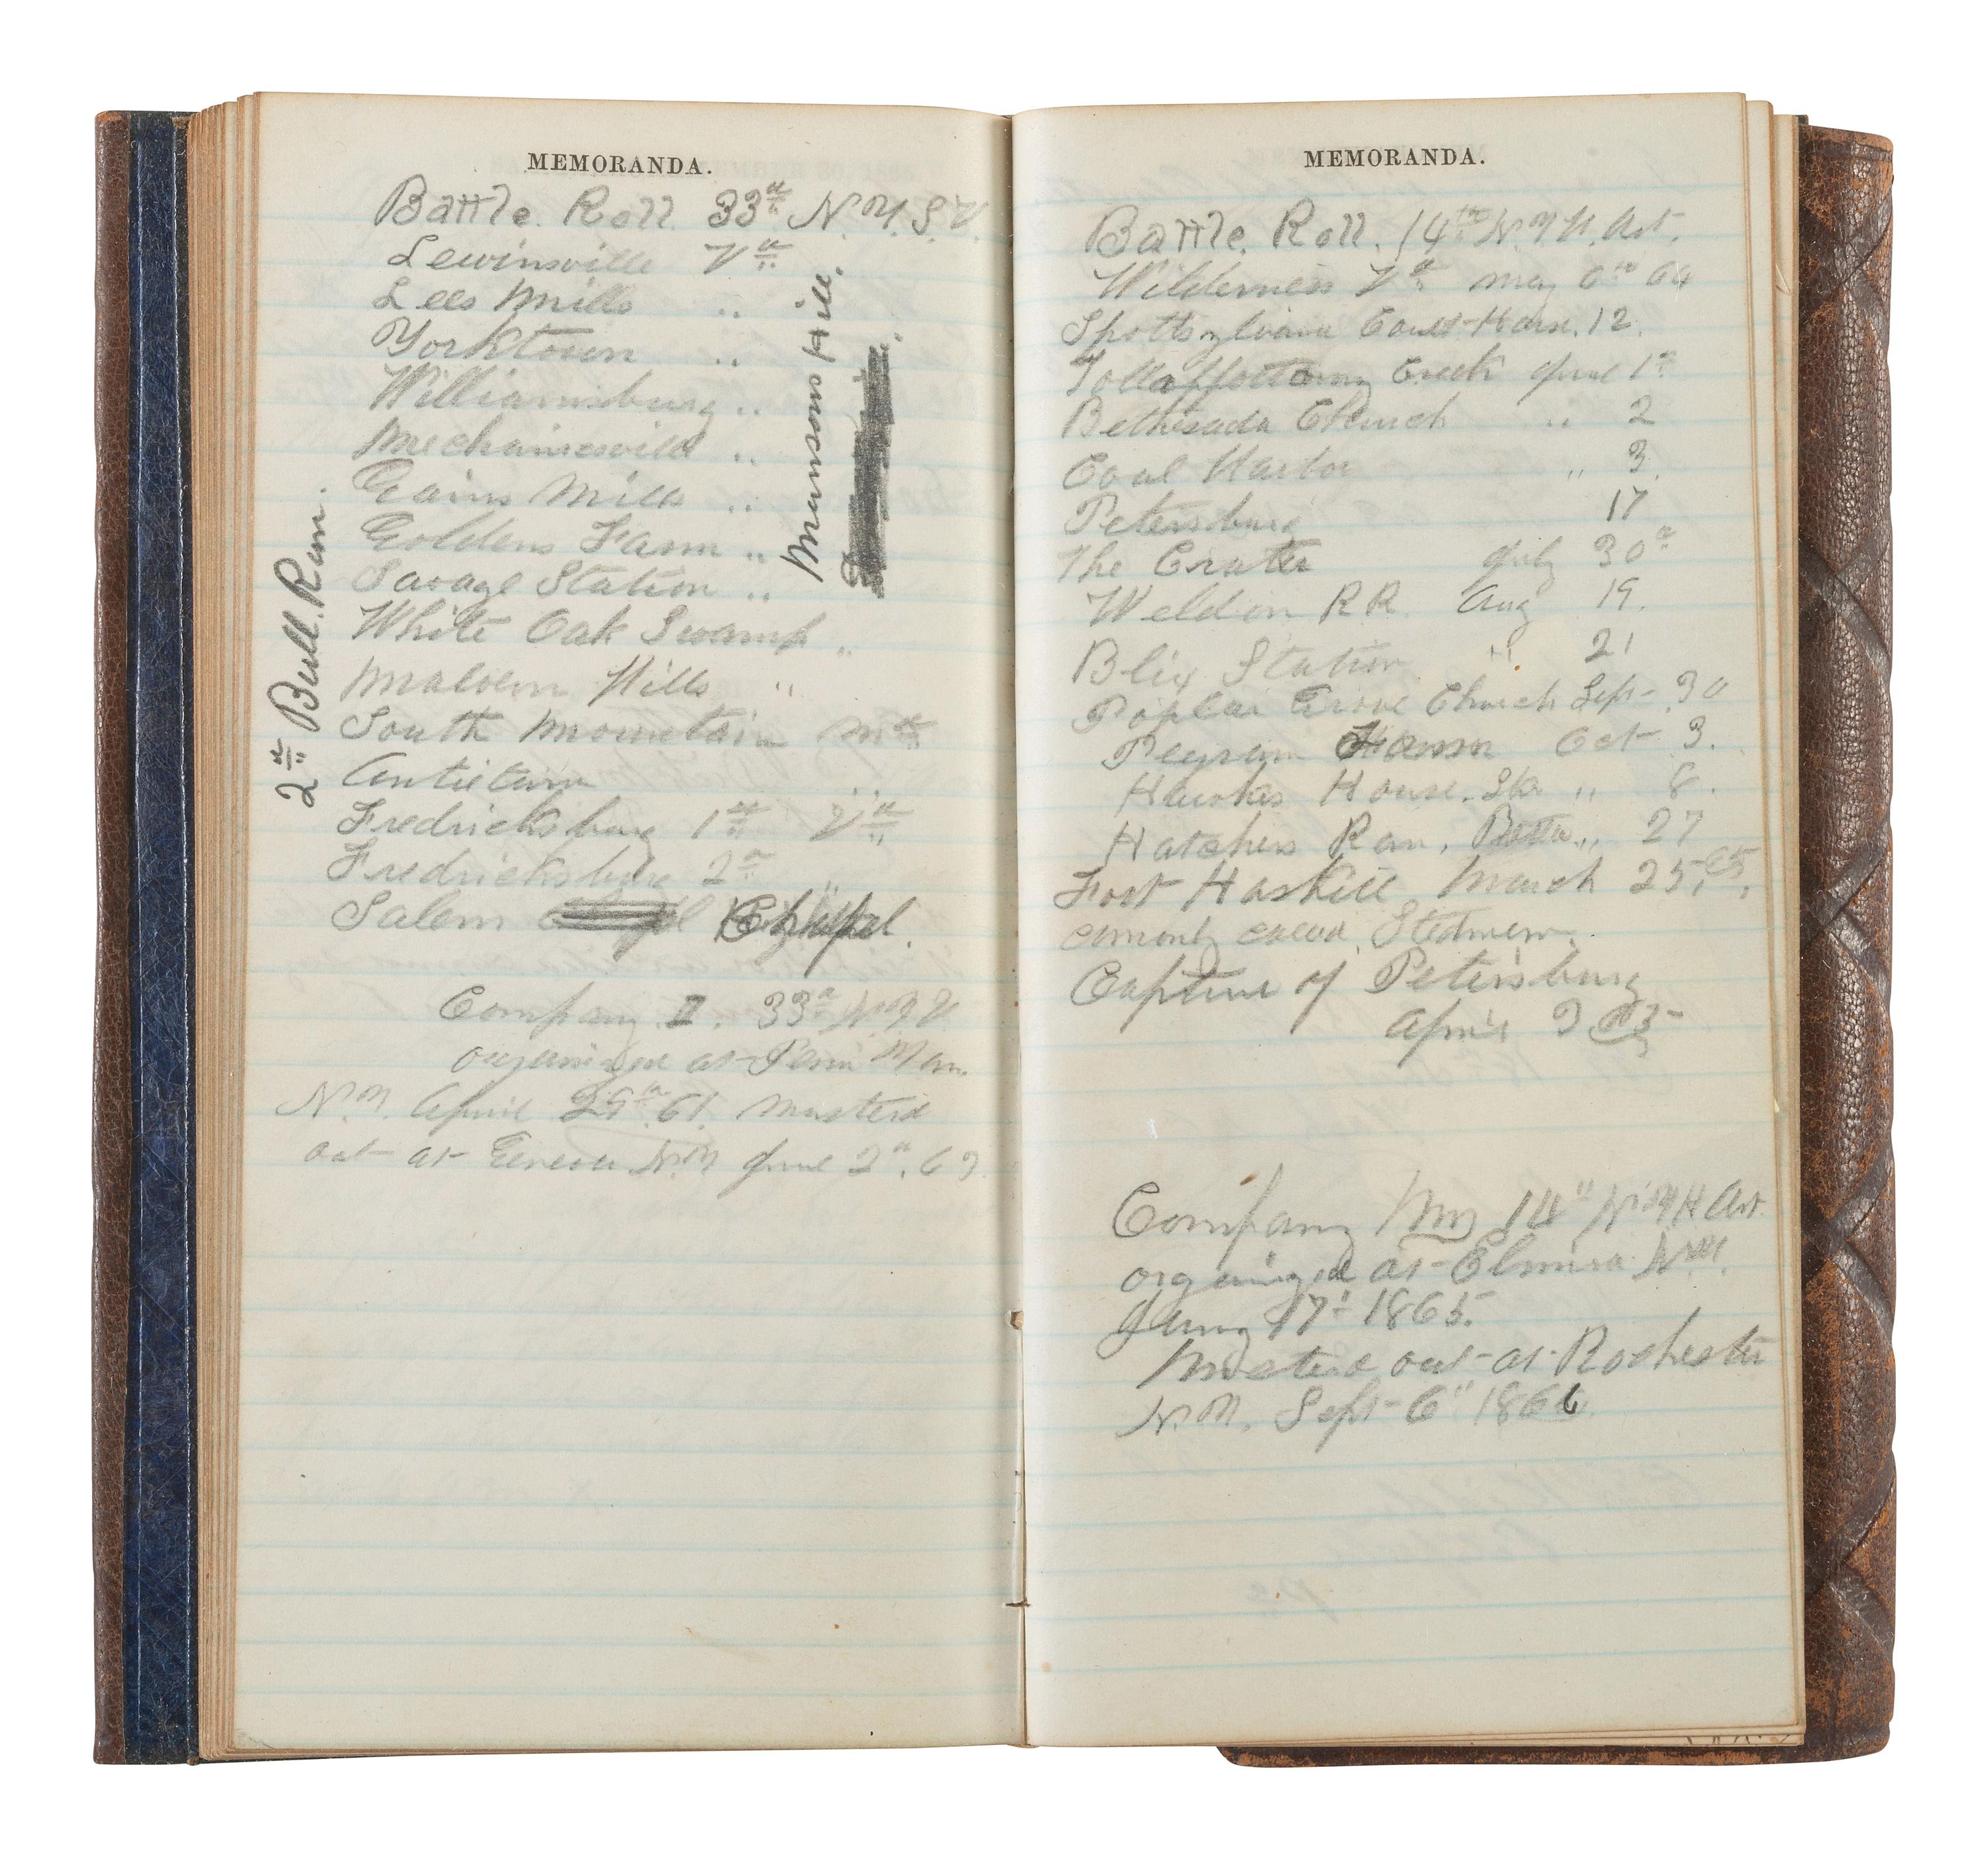 MEMORANDA.
Battle. Roll. 33d N.Y.S.V.
Lewinsville Va
Lees Mills "
Yorktown "
Williamsburg "
Mechanicsville "
Gains Mills "
Goldens Farm "
Savage Station "
White Oak Swamp "
Malvern Hills "
South Mountain Md
Antietam "
Fredricksburg 1st Va
Fredricksburg 2d "
Salem Chappel.
Munsons Hill.
2d Bull. Run.
Company 33d N.Y.V
organized at Penn Yan.
N.Y. April 29th 61. Musterd
out at Geneva N.Y June 2d. 63
MEMORANDA.
Battle. Roll. 14th N.Y H. Art.
Wilderness Va May 6th 64
Spottsylvania Court House. 12.
Tollapottomy Creek June 1st
Bethesada Church " 2
Coal Harbor " 3.
Petersburg 17
The Crater July 30th
Weldon R R. Aug 19.
Blix Station " 21
Poplar Grove Church Sept. 30
Pegram Farm Oct 3.
Hawks House. Sta " 8.
Hatchers Run, " 27
Fort Haskell March 25, 65,
Stedman.
Capture of Petersburg
April 3 65
Company 14th N.Y H Art.
organized at Elmira N.Y.
17th 1863.
Musterd out at Rochester
N.Y. Sept 6th 1866